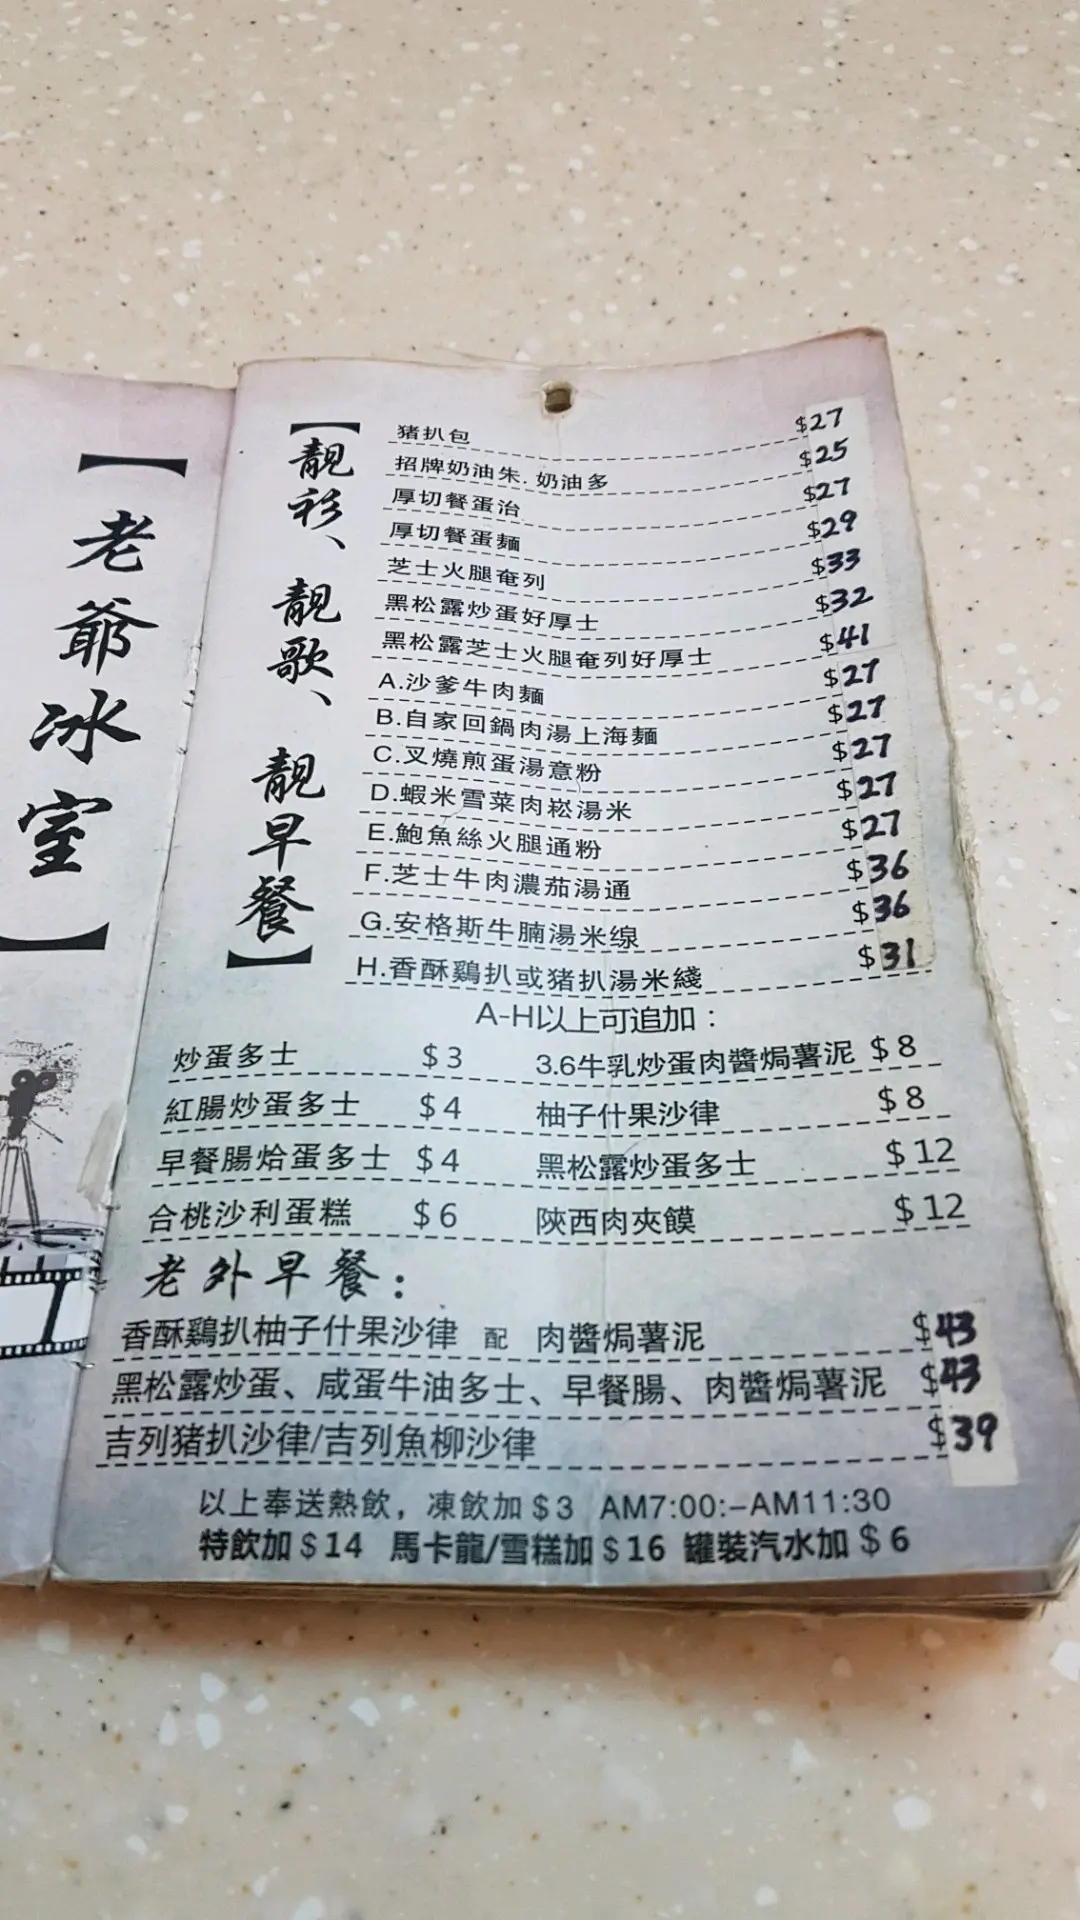 【老爺冰室】
【靚衫、靚歌、靚早餐】
猪扒包 $27
招牌奶油朱. 奶油多 $25
厚切餐蛋治 $27
厚切餐蛋麵 $29
芝士火腿奄列 $33
黑松露炒蛋好厚士 $32
黑松露芝士火腿奄列好厚士 $41
A.沙爹牛肉麵 $27
B.自家回鍋肉湯上海麵 $27
C.叉燒煎蛋湯意粉 $27
D.蝦米雪菜肉崧湯米 $27
E.鮑魚絲火腿通粉 $27
F.芝士牛肉濃茄湯通 $36
G.安格斯牛腩湯米線 $36
H.香酥鷄扒或猪扒湯米綫 $31
A-H以上可追加：
炒蛋多士 $3 3.6牛乳炒蛋肉醬焗薯泥 $8
紅腸炒蛋多士 $4 柚子什果沙律 $8
早餐腸烚蛋多士 $4 黑松露炒蛋多士 $12
合桃沙利蛋糕 $6 陝西肉夾饃 $12
老外早餐：
香酥鷄扒柚子什果沙律 配 肉醬焗薯泥 $43
黑松露炒蛋、咸蛋牛油多士、早餐腸、肉醬焗薯泥 $43
吉列猪扒沙律/吉列魚柳沙律 $39
以上奉送熱飲，凍飲加$3 AM7:00:–AM11:30
特飲加$14 馬卡龍/雪糕加$16 罐裝汽水加$6